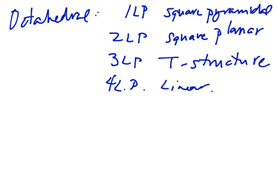 Octahedral: 1LP square pyramidal
2LP square planar
3LP T-structure
4L.P. Linear.